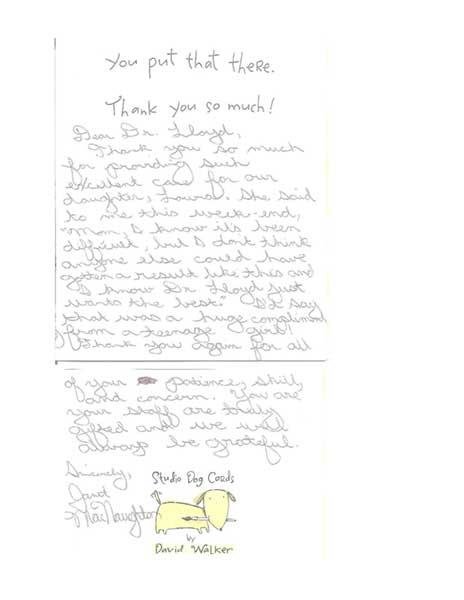 You put that there.
Thank you so much!
Dear Dr. Lloyd,
Thank you so much
for providing such
excellent care for our
daughter, Laura. She said
to me this week-end,
"Mom, I know it's been
difficult, but I don't think
anyone else could have
gotten a result like this and
I know Dr. Lloyd just
wants the best." I'd say
that was a huge compliment
from a teenage girl!
Thank you again for all
of your patience, skill,
and concern. You are
your staff are truly
gifted and we will
always be grateful.
Sincerely,
Janet
MacNaughton
Studio Dog Cards
by
David Walker